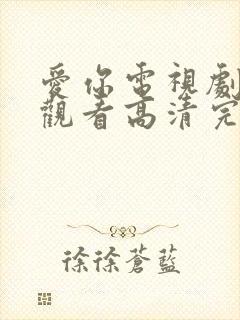 愛你電視劇
觀看高清完
徐徐蒼藍